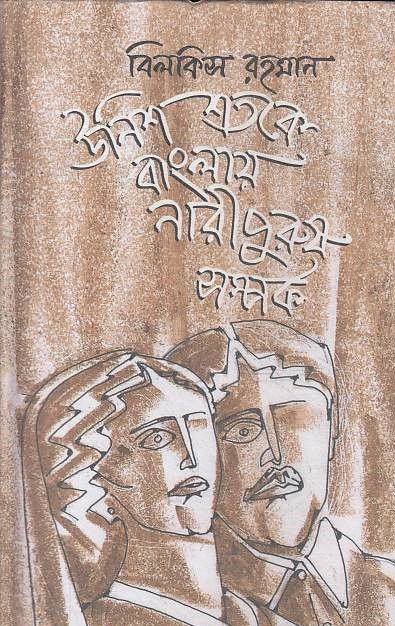 বিলকিস রহমান
উনিশ শতকে
বাংলায়
নারীপুরুষ
সম্পর্ক